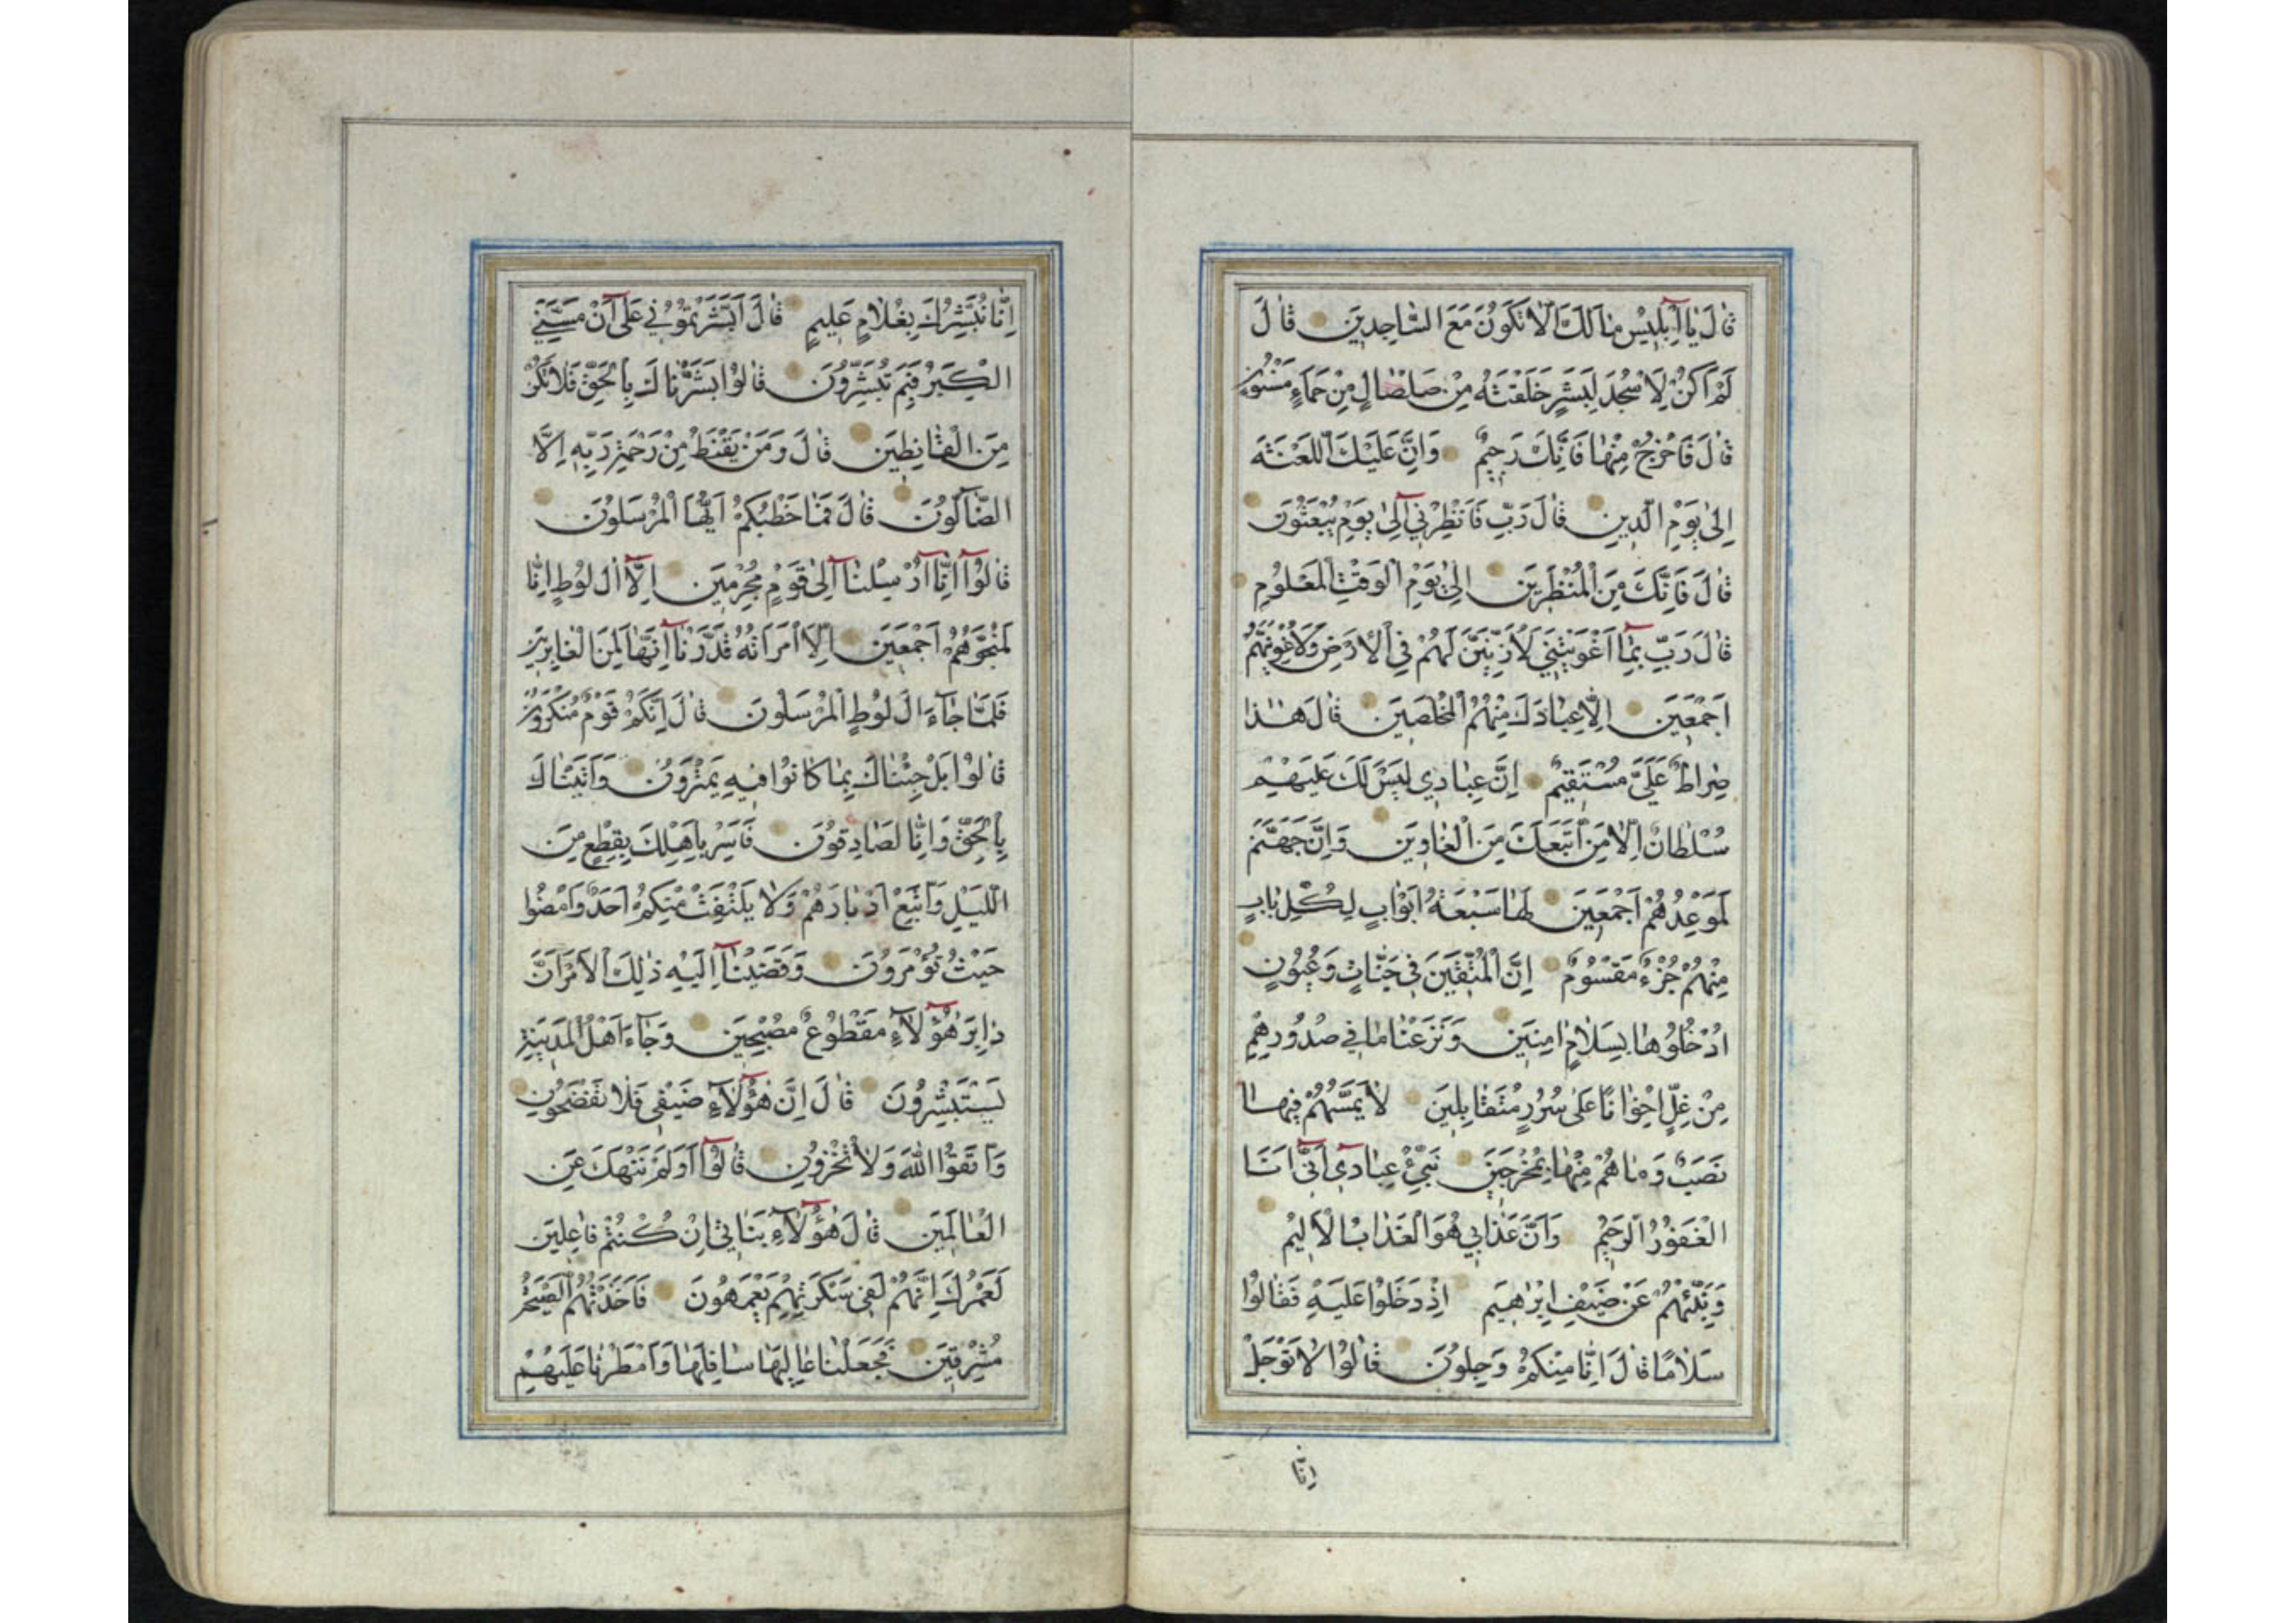 قَالَ يَا اِبْلِيسُ مَا لَكَ اَلَّا تَكُونَ مَعَ السَّاجِدِينَ قَالَ
لَمْ اَكُنْ لِاَسْجُدَ لِبَشَرٍ خَلَقْتَهُ مِنْ صَلْصَالٍ مِنْ حَمَاءٍ مَسْنُونٍ
قَالَ فَاخْرُجْ مِنْهَا فَاِنَّكَ رَجِيمٌ وَاِنَّ عَلَيْكَ اللَّعْنَةَ
اِلٰى يَوْمِ الدِّينِ قَالَ رَبِّ فَانْظِرْنِي اِلٰى يَوْمِ يُبْعَثُونَ
قَالَ فَاِنَّكَ مِنَ الْمُنْظَرِينَ اِلٰى يَوْمِ الْوَقْتِ الْمَعْلُومِ
قَالَ رَبِّ بِمَا اَغْوَيْتَنِي لَاُزَيِّنَنَّ لَهُمْ فِي الْاَرْضِ وَلَاُغْوِيَنَّهُمْ
اَجْمَعِينَ اِلَّا عِبَادَكَ مِنْهُمُ الْمُخْلَصِينَ قَالَ هٰذَا
صِرَاطٌ عَلَيَّ مُسْتَقِيمٌ اِنَّ عِبَادِي لَيْسَ لَكَ عَلَيْهِمْ
سُلْطَانٌ اِلَّا مَنِ اتَّبَعَكَ مِنَ الْغَاوِينَ وَاِنَّ جَهَنَّمَ
لَمَوْعِدُهُمْ اَجْمَعِينَ لَهَا سَبْعَةُ اَبْوَابٍ لِكُلِّ بَابٍ
مِنْهُمْ جُزْءٌ مَقْسُومٌ اِنَّ الْمُتَّقِينَ فِي جَنَّاتٍ وَعُيُونٍ
اُدْخُلُوهَا بِسَلَامٍ اٰمِنِينَ وَنَزَعْنَا مَا فِي صُدُورِهِمْ
مِنْ غِلٍّ اِخْوَانًا عَلٰى سُرُرٍ مُتَقَابِلِينَ لَا يَمَسُّهُمْ فِيهَا
نَصَبٌ وَمَا هُمْ مِنْهَا بِمُخْرَجِينَ نَبِّئْ عِبَادِي اَنِّي اَنَا
الْغَفُورُ الرَّحِيمُ وَاَنَّ عَذَابِي هُوَ الْعَذَابُ الْاَلِيمُ
وَنَبِّئْهُمْ عَنْ ضَيْفِ اِبْرٰهِيمَ اِذْ دَخَلُوا عَلَيْهِ فَقَالُوا
سَلَامًا قَالَ اِنَّا مِنْكُمْ وَجِلُونَ قَالُوا لَا تَوْجَلْ
اِنَّا
اِنَّا نُبَشِّرُكَ بِغُلَامٍ عَلِيمٍ قَالَ اَبَشَّرْتُمُونِي عَلٰى اَنْ مَسَّنِيَ
الْكِبَرُ فَبِمَ تُبَشِّرُونَ قَالُوا بَشَّرْنَاكَ بِالْحَقِّ فَلَا تَكُنْ
مِنَ الْقَانِطِينَ قَالَ وَمَنْ يَقْنَطُ مِنْ رَحْمَةِ رَبِّهِ اِلَّا
الضَّالُّونَ قَالَ فَمَا خَطْبُكُمْ اَيُّهَا الْمُرْسَلُونَ
قَالُوا اِنَّا اُرْسِلْنَا اِلٰى قَوْمٍ مُجْرِمِينَ اِلَّا اٰلَ لُوطٍ اِنَّا
لَمُنَجُّوهُمْ اَجْمَعِينَ اِلَّا امْرَاَتَهُ قَدَّرْنَا اِنَّهَا لَمِنَ الْغَابِرِينَ
فَلَمَّا جَاءَ اٰلَ لُوطٍ الْمُرْسَلُونَ قَالَ اِنَّكُمْ قَوْمٌ مُنْكَرُونَ
قَالُوا بَلْ جِئْنَاكَ بِمَا كَانُوا فِيهِ يَمْتَرُونَ وَاَتَيْنَاكَ
بِالْحَقِّ وَاِنَّا لَصَادِقُونَ فَاَسْرِ بِاَهْلِكَ بِقِطْعٍ مِنَ
اللَّيْلِ وَاتَّبِعْ اَدْبَارَهُمْ وَلَا يَلْتَفِتْ مِنْكُمْ اَحَدٌ وَامْضُوا
حَيْثُ تُؤْمَرُونَ وَقَضَيْنَا اِلَيْهِ ذٰلِكَ الْاَمْرَ اَنَّ
دَابِرَ هٰؤُلَاءِ مَقْطُوعٌ مُصْبِحِينَ وَجَاءَ اَهْلُ الْمَدِينَةِ
يَسْتَبْشِرُونَ قَالَ اِنَّ هٰؤُلَاءِ ضَيْفِي فَلَا تَفْضَحُونِ
وَاتَّقُوا اللّٰهَ وَلَا تُخْزُونِ قَالُوا اَوَلَمْ نَنْهَكَ عَنِ
الْعَالَمِينَ قَالَ هٰؤُلَاءِ بَنَاتِي اِنْ كُنْتُمْ فَاعِلِينَ
لَعَمْرُكَ اِنَّهُمْ لَفِي سَكْرَتِهِمْ يَعْمَهُونَ فَاَخَذَتْهُمُ الصَّيْحَةُ
مُشْرِقِينَ فَجَعَلْنَا عَالِيَهَا سَافِلَهَا وَاَمْطَرْنَا عَلَيْهِمْ